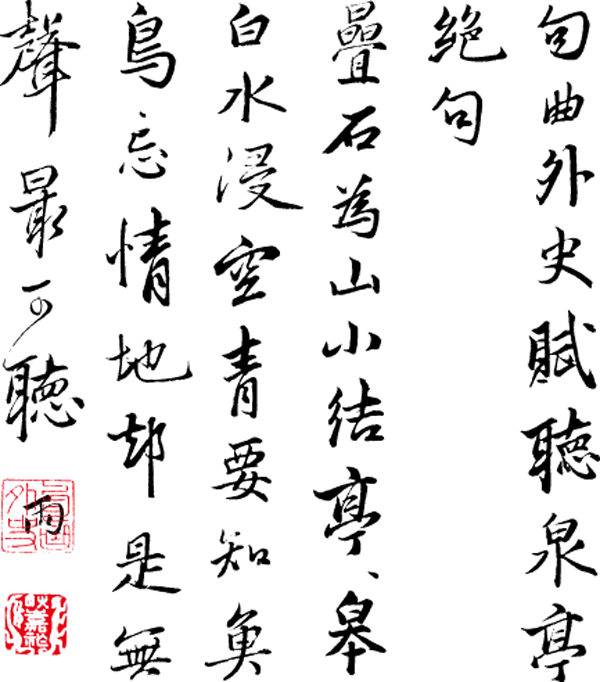 句曲外史賦聽泉亭
絕句
疊石為山小結亭、皋
白水浸空青要知魚
鳥忘情地却是無
聲最可聽
雨
句曲外史